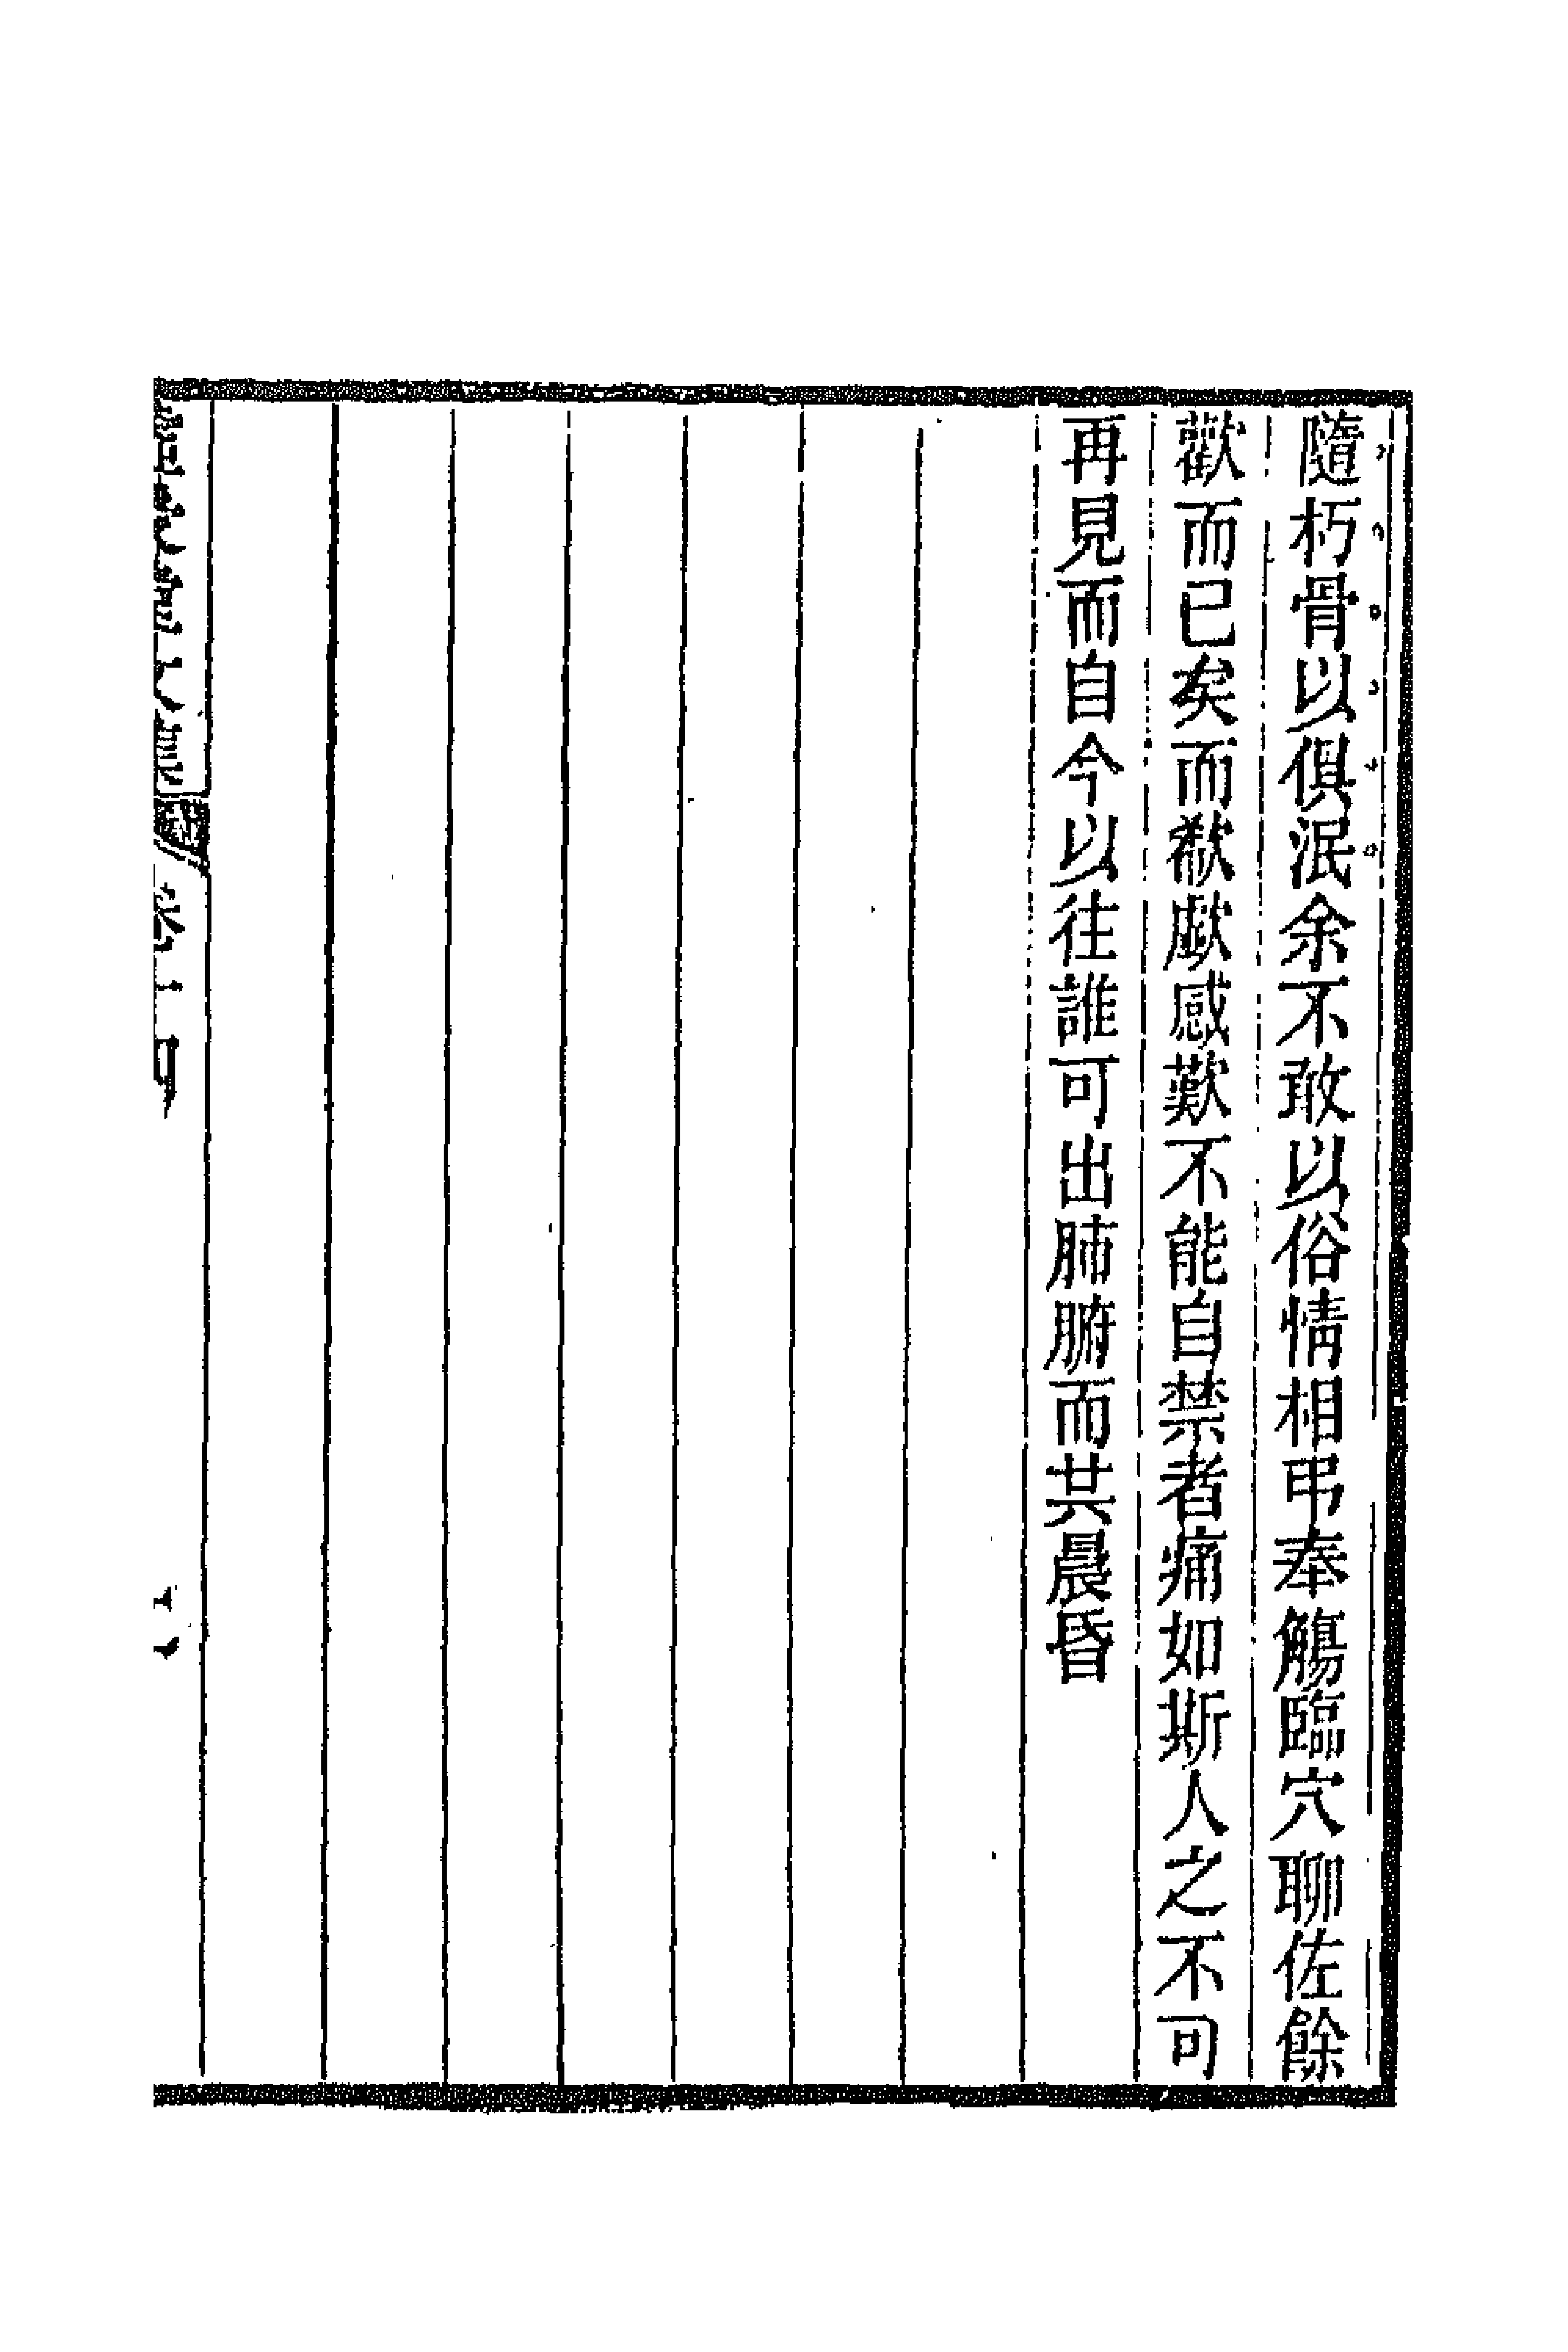 隨朽骨以俱泯余不敢以俗情相弔奉觴臨穴聊佐餘
歡而已矣而欷歔感歎不能自禁者痛如斯人之不可
再見而自今以往誰可出肺腑而共晨昏